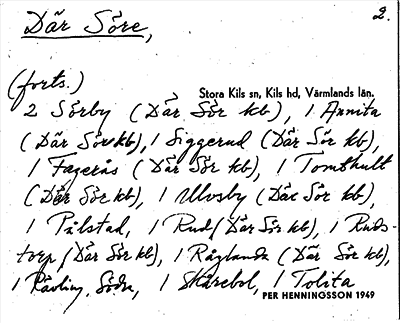 Där Söre, 2.
(forts.)
Stora Kils sn, Kils hd, Värmlands län.
2 Sörby (Där Sör kb), 1 Annita
(Där Sör kb), 1 Siggerud (Där Sör kb),
1 Fagerås (Där Sör kb), 1 Tomthult
(Där Sör kb), 1 Ulvsby (Där Sör kb),
1 Pilstad, 1 Rud (Där Sör kb), 1 Ruds-
torp (Där Sör kb), 1 Råglanda (Där Sör kb),
1 Rävling, Södra, 1 Skårebol, 1 Tolita
PER HENNINGSSON 1949